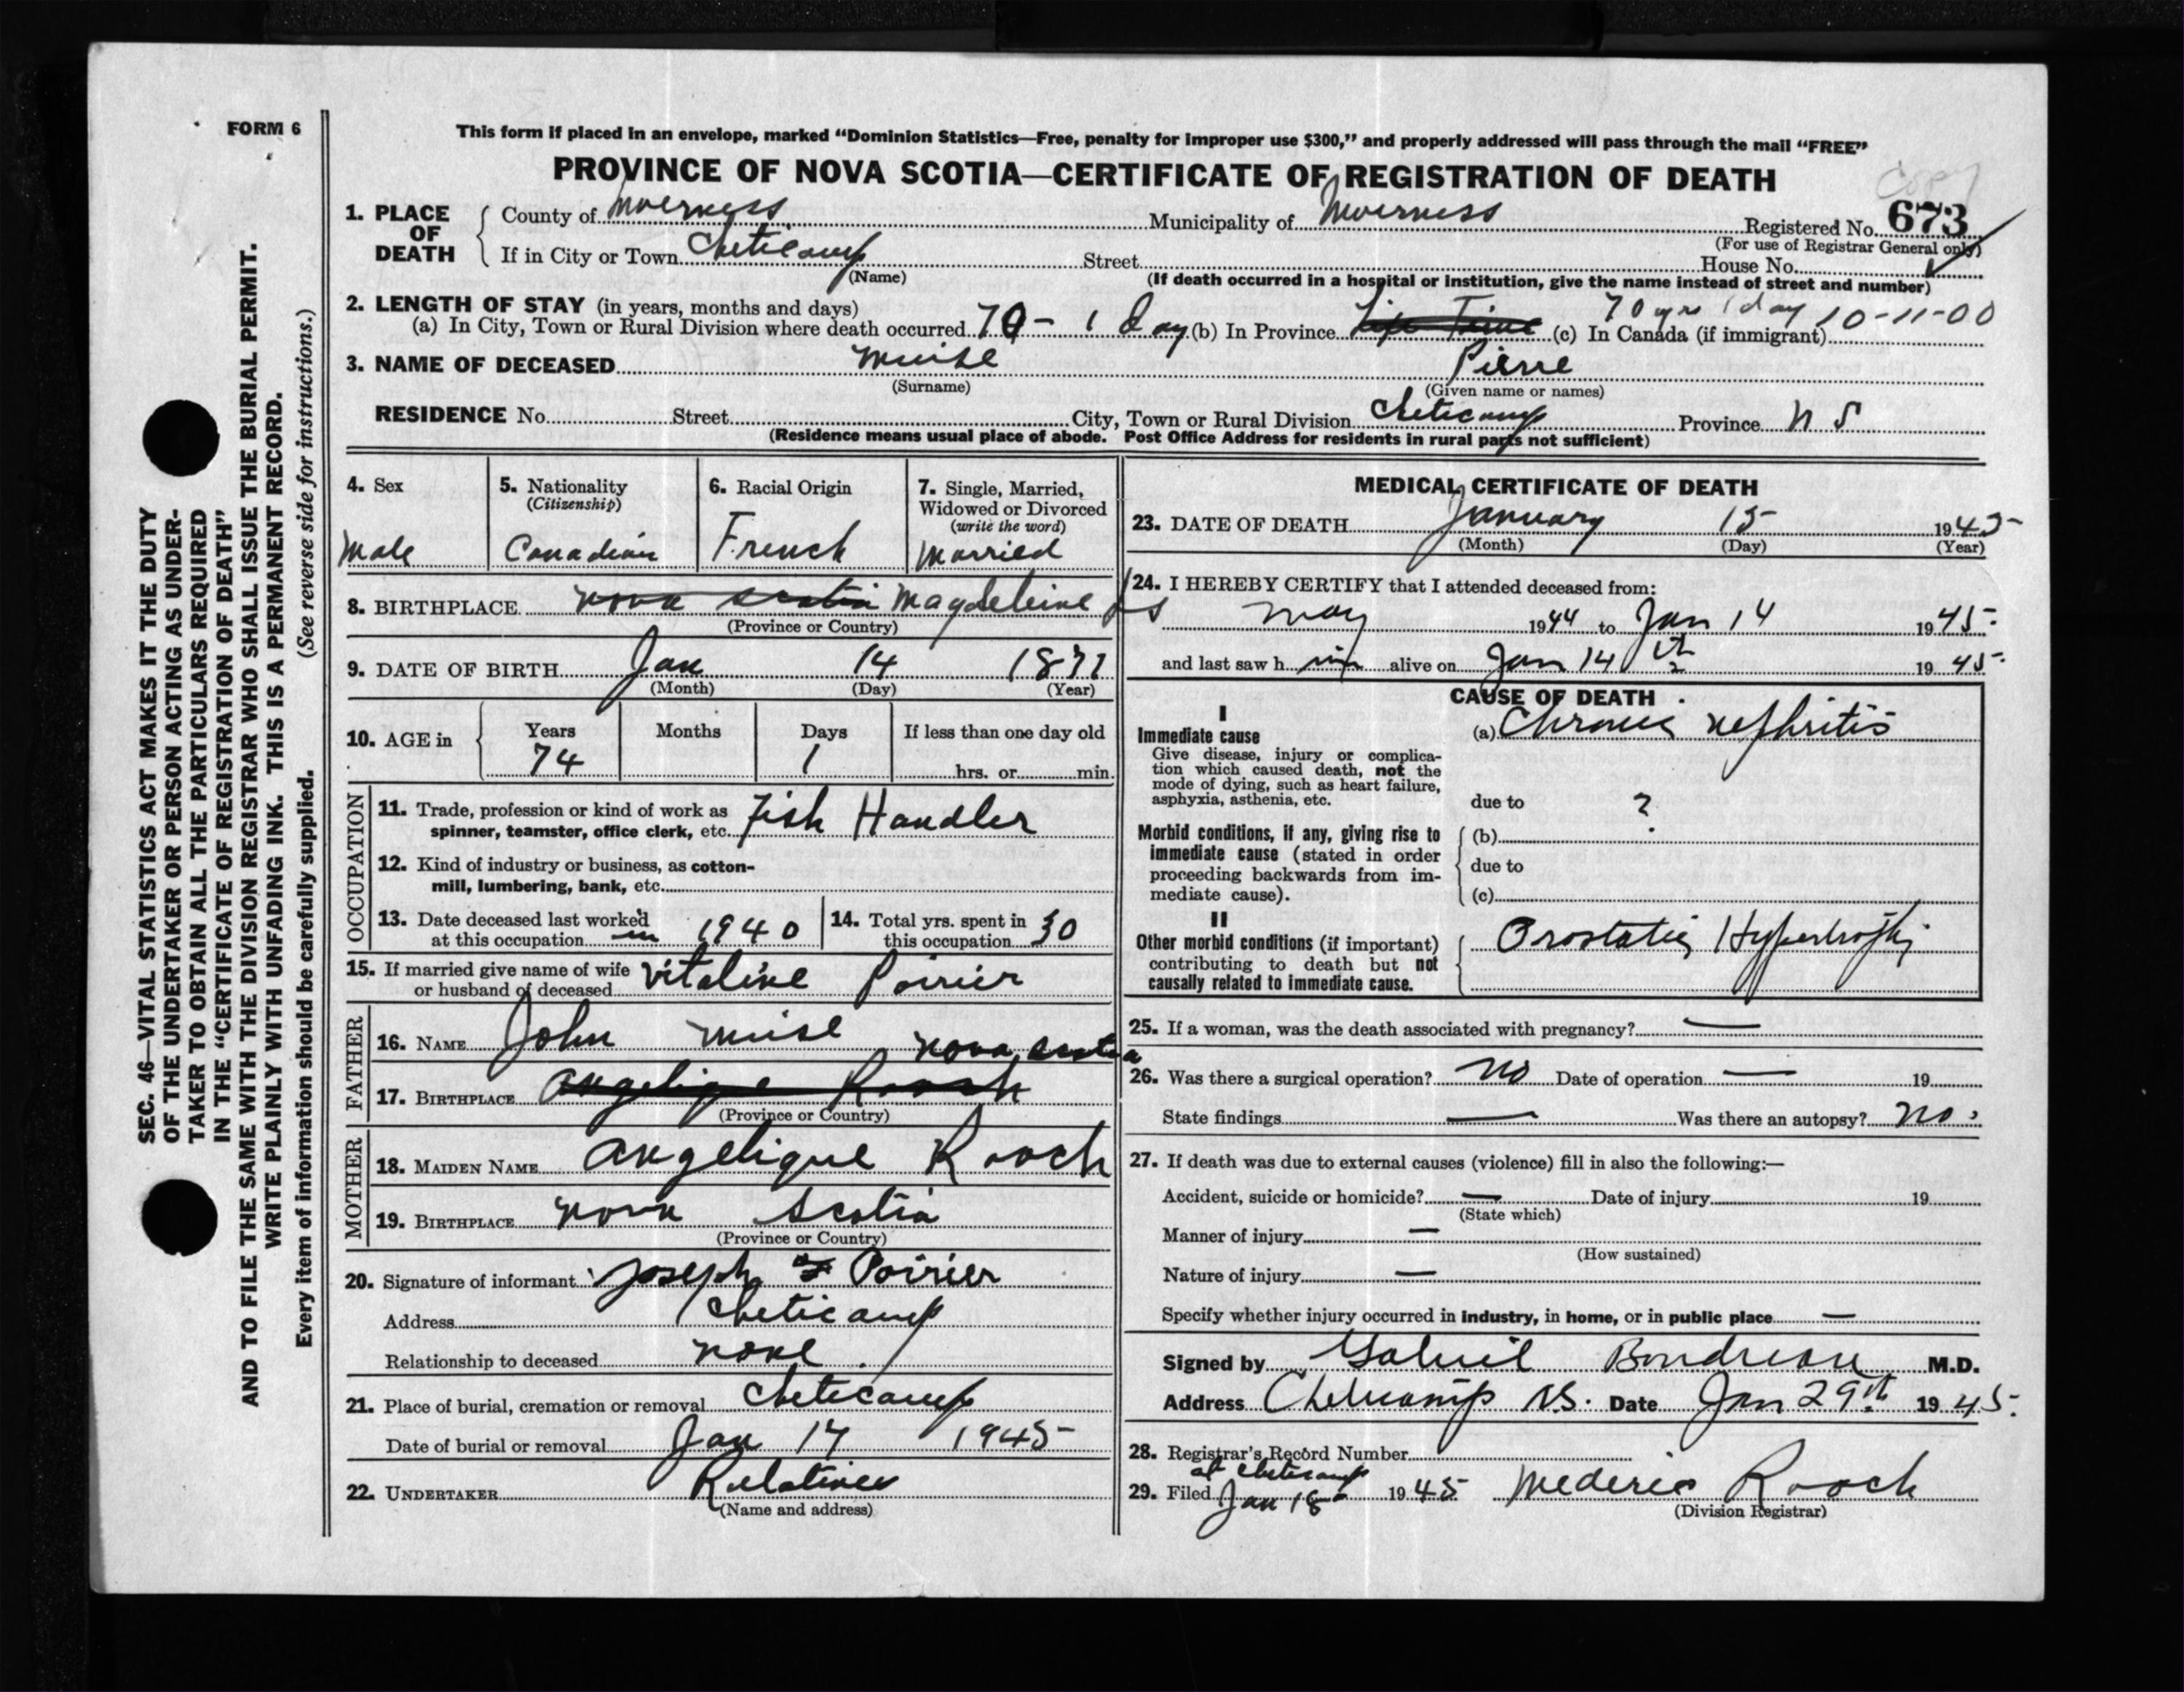 FORM 6
This form if placed in an envelope, marked “Dominion Statistics—Free, penalty for improper use $300,” and properly addressed will pass through the mail “FREE”
PROVINCE OF NOVA SCOTIA—CERTIFICATE OF REGISTRATION OF DEATH
copy
1. PLACE OF DEATH
County of Inverness Municipality of Inverness Registered No. 673
(For use of Registrar General only)
If in City or Town Cheticamp Street House No.
(Name) (If death occurred in a hospital or institution, give the name instead of street and number)
2. LENGTH OF STAY (in years, months and days) 70 yrs 1 day 10-11-00
(a) In City, Town or Rural Division where death occurred 70 - 1 day (b) In Province Life Time (c) In Canada (if immigrant)
3. NAME OF DECEASED Muise Pierre
(Surname) (Given name or names)
RESIDENCE No. Street City, Town or Rural Division Cheticamp Province N S
(Residence means usual place of abode. Post Office Address for residents in rural parts not sufficient)
4. Sex
Male
5. Nationality
(Citizenship)
Canadian
6. Racial Origin
French
7. Single, Married,
Widowed or Divorced
(write the word)
Married
8. BIRTHPLACE Nova Scotia Magdeleine Is
(Province or Country)
9. DATE OF BIRTH Jan 14 1871
(Month) (Day) (Year)
10. AGE in
Years Months Days If less than one day old
74 1 hrs. or min.
OCCUPATION
11. Trade, profession or kind of work as
spinner, teamster, office clerk, etc. Fish Handler
12. Kind of industry or business, as cotton-
mill, lumbering, bank, etc.
13. Date deceased last worked
at this occupation in 1940
14. Total yrs. spent in
this occupation 30
15. If married give name of wife
or husband of deceased Vitaline Poirier
FATHER
16. NAME John Muise
Nova Scotia
17. BIRTHPLACE Angelique Roach
(Province or Country)
MOTHER
18. MAIDEN NAME Angelique Roach
19. BIRTHPLACE Nova Scotia
(Province or Country)
20. Signature of informant Joseph Poirier
Address Cheticamp
Relationship to deceased none
21. Place of burial, cremation or removal Cheticamp
Date of burial or removal Jan 17 1945
22. UNDERTAKER Relatives
(Name and address)
MEDICAL CERTIFICATE OF DEATH
23. DATE OF DEATH January 15 1945
(Month) (Day) (Year)
24. I HEREBY CERTIFY that I attended deceased from:
May 1944 to Jan 14 1945
and last saw him alive on Jan 14th 1945
CAUSE OF DEATH
I
Immediate cause
Give disease, injury or complica-
tion which caused death, not the
mode of dying, such as heart failure,
asphyxia, asthenia, etc.
(a) Chronic nephritis
due to ?
Morbid conditions, if any, giving rise to
immediate cause (stated in order
proceeding backwards from im-
mediate cause).
(b)
due to
(c)
II
Other morbid conditions (if important)
contributing to death but not
causally related to immediate cause.
Prostatic Hypertrophy
25. If a woman, was the death associated with pregnancy? —
26. Was there a surgical operation? No Date of operation — 19
State findings — Was there an autopsy? No
27. If death was due to external causes (violence) fill in also the following:—
Accident, suicide or homicide? — Date of injury 19
(State which)
Manner of injury —
(How sustained)
Nature of injury —
Specify whether injury occurred in industry, in home, or in public place —
Signed by Gabriel Boudreau M.D.
Address Cheticamp N.S. Date Jan 29th 1945
28. Registrar's Record Number
at Cheticamp
29. Filed Jan 18 1945 Mederic Roach
(Division Registrar)
SEC. 46—VITAL STATISTICS ACT MAKES IT THE DUTY
OF THE UNDERTAKER OR PERSON ACTING AS UNDER-
TAKER TO OBTAIN ALL THE PARTICULARS REQUIRED
IN THE “CERTIFICATE OF REGISTRATION OF DEATH”
AND TO FILE THE SAME WITH THE DIVISION REGISTRAR WHO SHALL ISSUE THE BURIAL PERMIT.
WRITE PLAINLY WITH UNFADING INK. THIS IS A PERMANENT RECORD.
Every item of information should be carefully supplied. (See reverse side for instructions.)